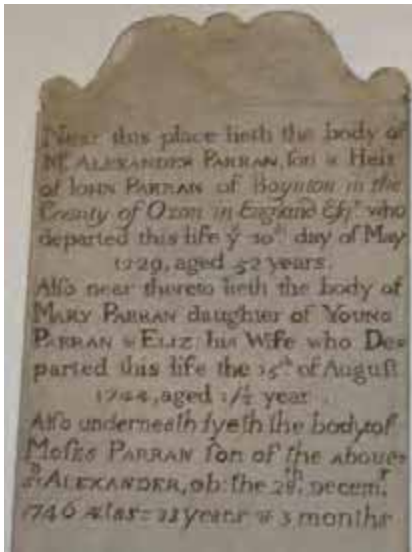 Near this place lieth the body of
Mr. ALEXANDER PARRAN, son & Heir
of IOHN PARRAN of Boynton in the
County of Oxon in England Esqr. who
departed this life ye 30th day of May
1729, aged 52 years.
Also near thereto lieth the body of
MARY PARRAN daughter of YOUNG
PARRAN & ELIZ: his Wife who De=
parted this life the 15th of August
1744, aged 1½ year
Also underneath lyeth the body of
Moses PARRAN son of the above
sd. ALEXANDER, ob: the 28th. Decemr.
1740 years & 3 months